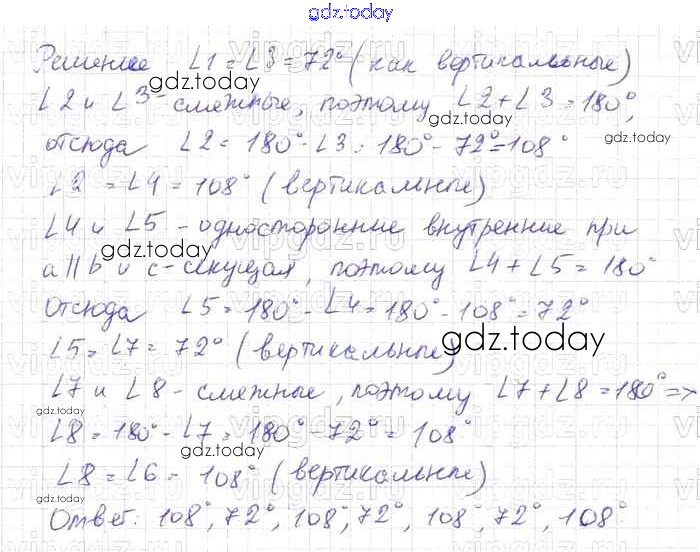 gdz.today
Решение ∠1 = ∠3 = 72° (как вертикальные)
gdz.today
∠2 и ∠3 - смежные, поэтому ∠2 + ∠3 = 180°,
gdz.today
отсюда ∠2 = 180° - ∠3 = 180° - 72° = 108°
∠2 = ∠4 = 108° (вертикальные)
∠4 и ∠5 - односторонние внутренние при
gdz.today
a || b и c - секущая, поэтому ∠4 + ∠5 = 180°
Отсюда ∠5 = 180° - ∠4 = 180° - 108° = 72°
gdz.today
∠5 = ∠7 = 72° (вертикальные)
∠7 и ∠8 - смежные, поэтому ∠7 + ∠8 = 180° =>
gdz.today
∠8 = 180° - ∠7 = 180° - 72° = 108°
gdz.today
∠8 = ∠6 = 108° (вертикальные)
gdz.today
Ответ: 108°, 72°, 108°, 72°, 108°, 72°, 108°
gdz.today